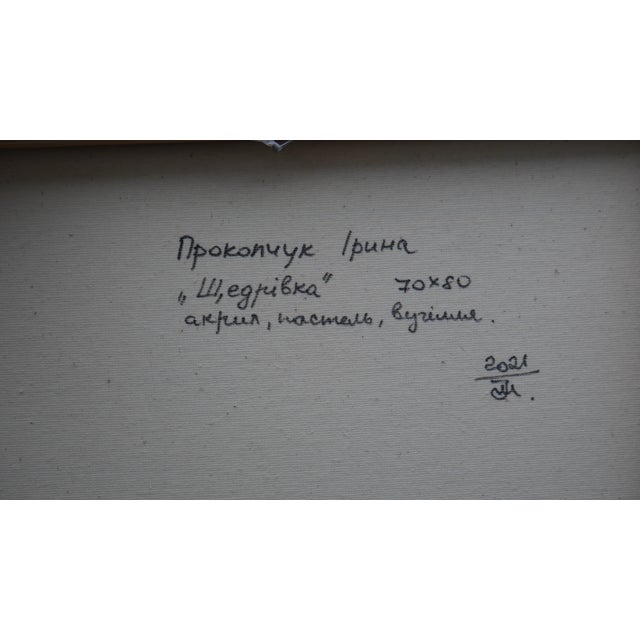 Прокопчук Ірина
„Щедрівка" 70х80
акрил, пастель, вугілля.
2021